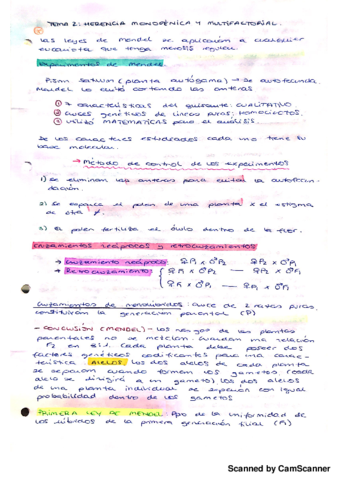 TEMA 2: HERENCIA MONOGÉNICA Y MULTIFACTORIAL.
Las leyes de Mendel se aplican a cualquier
eucariota que tenga meiosis regular.
Experimentos de Mendel
Pisum sativum (planta autógama) → Se autofecunda.
Mendel lo evitó cortando las anteras
① 7 características del guisante: CUALITATIVO
② Cruces genéticos de líneas puras: HOMOCIGOTOS.
③ Utilizó MATEMÁTICAS para el análisis.
De los caracteres estudiados cada uno tiene su
base molecular.
→ Método de control de los experimentos
1) Se eliminan las anteras para evitar la autofecun-
dación.
2) Se esparce el polen de una planta x el estigma
de otra
3) El polen fertiliza el óvulo dentro de la flor.
Cruzamientos recíprocos y retrocruzamientos
→ Cruzamiento recíproco: ♀P1 x ♂P2 ♀P2 x ♂P1
→ Retrocruzamiento: ♀P1 x ♂P2 — ♀P1 x ♂F1
♀P1 x ♂P2 — ♀P2 x ♂F1
Cruzamientos de monohíbridos: cruce de 2 razas puras,
constituyen la generación parental (P)
- CONCLUSIÓN (MENDEL) - Los rasgos de las plantas
parentales no se mezclan. Guardan una relación
F2 en 3:1. Cada planta debe poseer dos
factores genéticos codificantes para una carac-
terística ALELOS. Los dos alelos de cada planta
se separan cuando forman los gametos (cada
alelo se dirigirá a un gameto). Los dos alelos
de una planta individual se separan con igual
probabilidad dentro de los gametos
PRIMERA LEY DE MENDEL: de la uniformidad de
los híbridos de la primera generación filial (F1)
Scanned by CamScanner